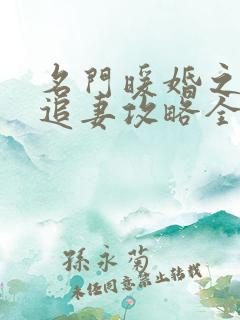 名門暖婚之
追妻攻略全
孫永菊
未任同意禁止轉載